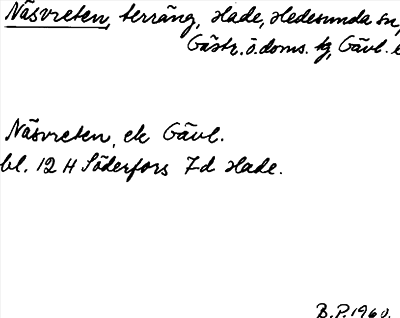 Näsvreten, terräng, Hade, Hedesunda sn,
Gästr. ö. doms. tg, Gävl.
Näsvreten, ek Gävl.
bl. 12 H Söderfors 7d Hade.
B.P. 1960.